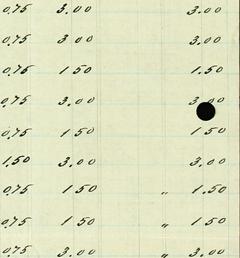 0.75 3.00 3.00
0.75 3.00 3.00
0.75 1.50 1.50
0.75 3.00 3.00
0.75 1.50 1.50
1.50 3.00 3.00
0.75 1.50 " 1.50
0.75 1.50 " 1.50
0.75 3.00 " 3.00